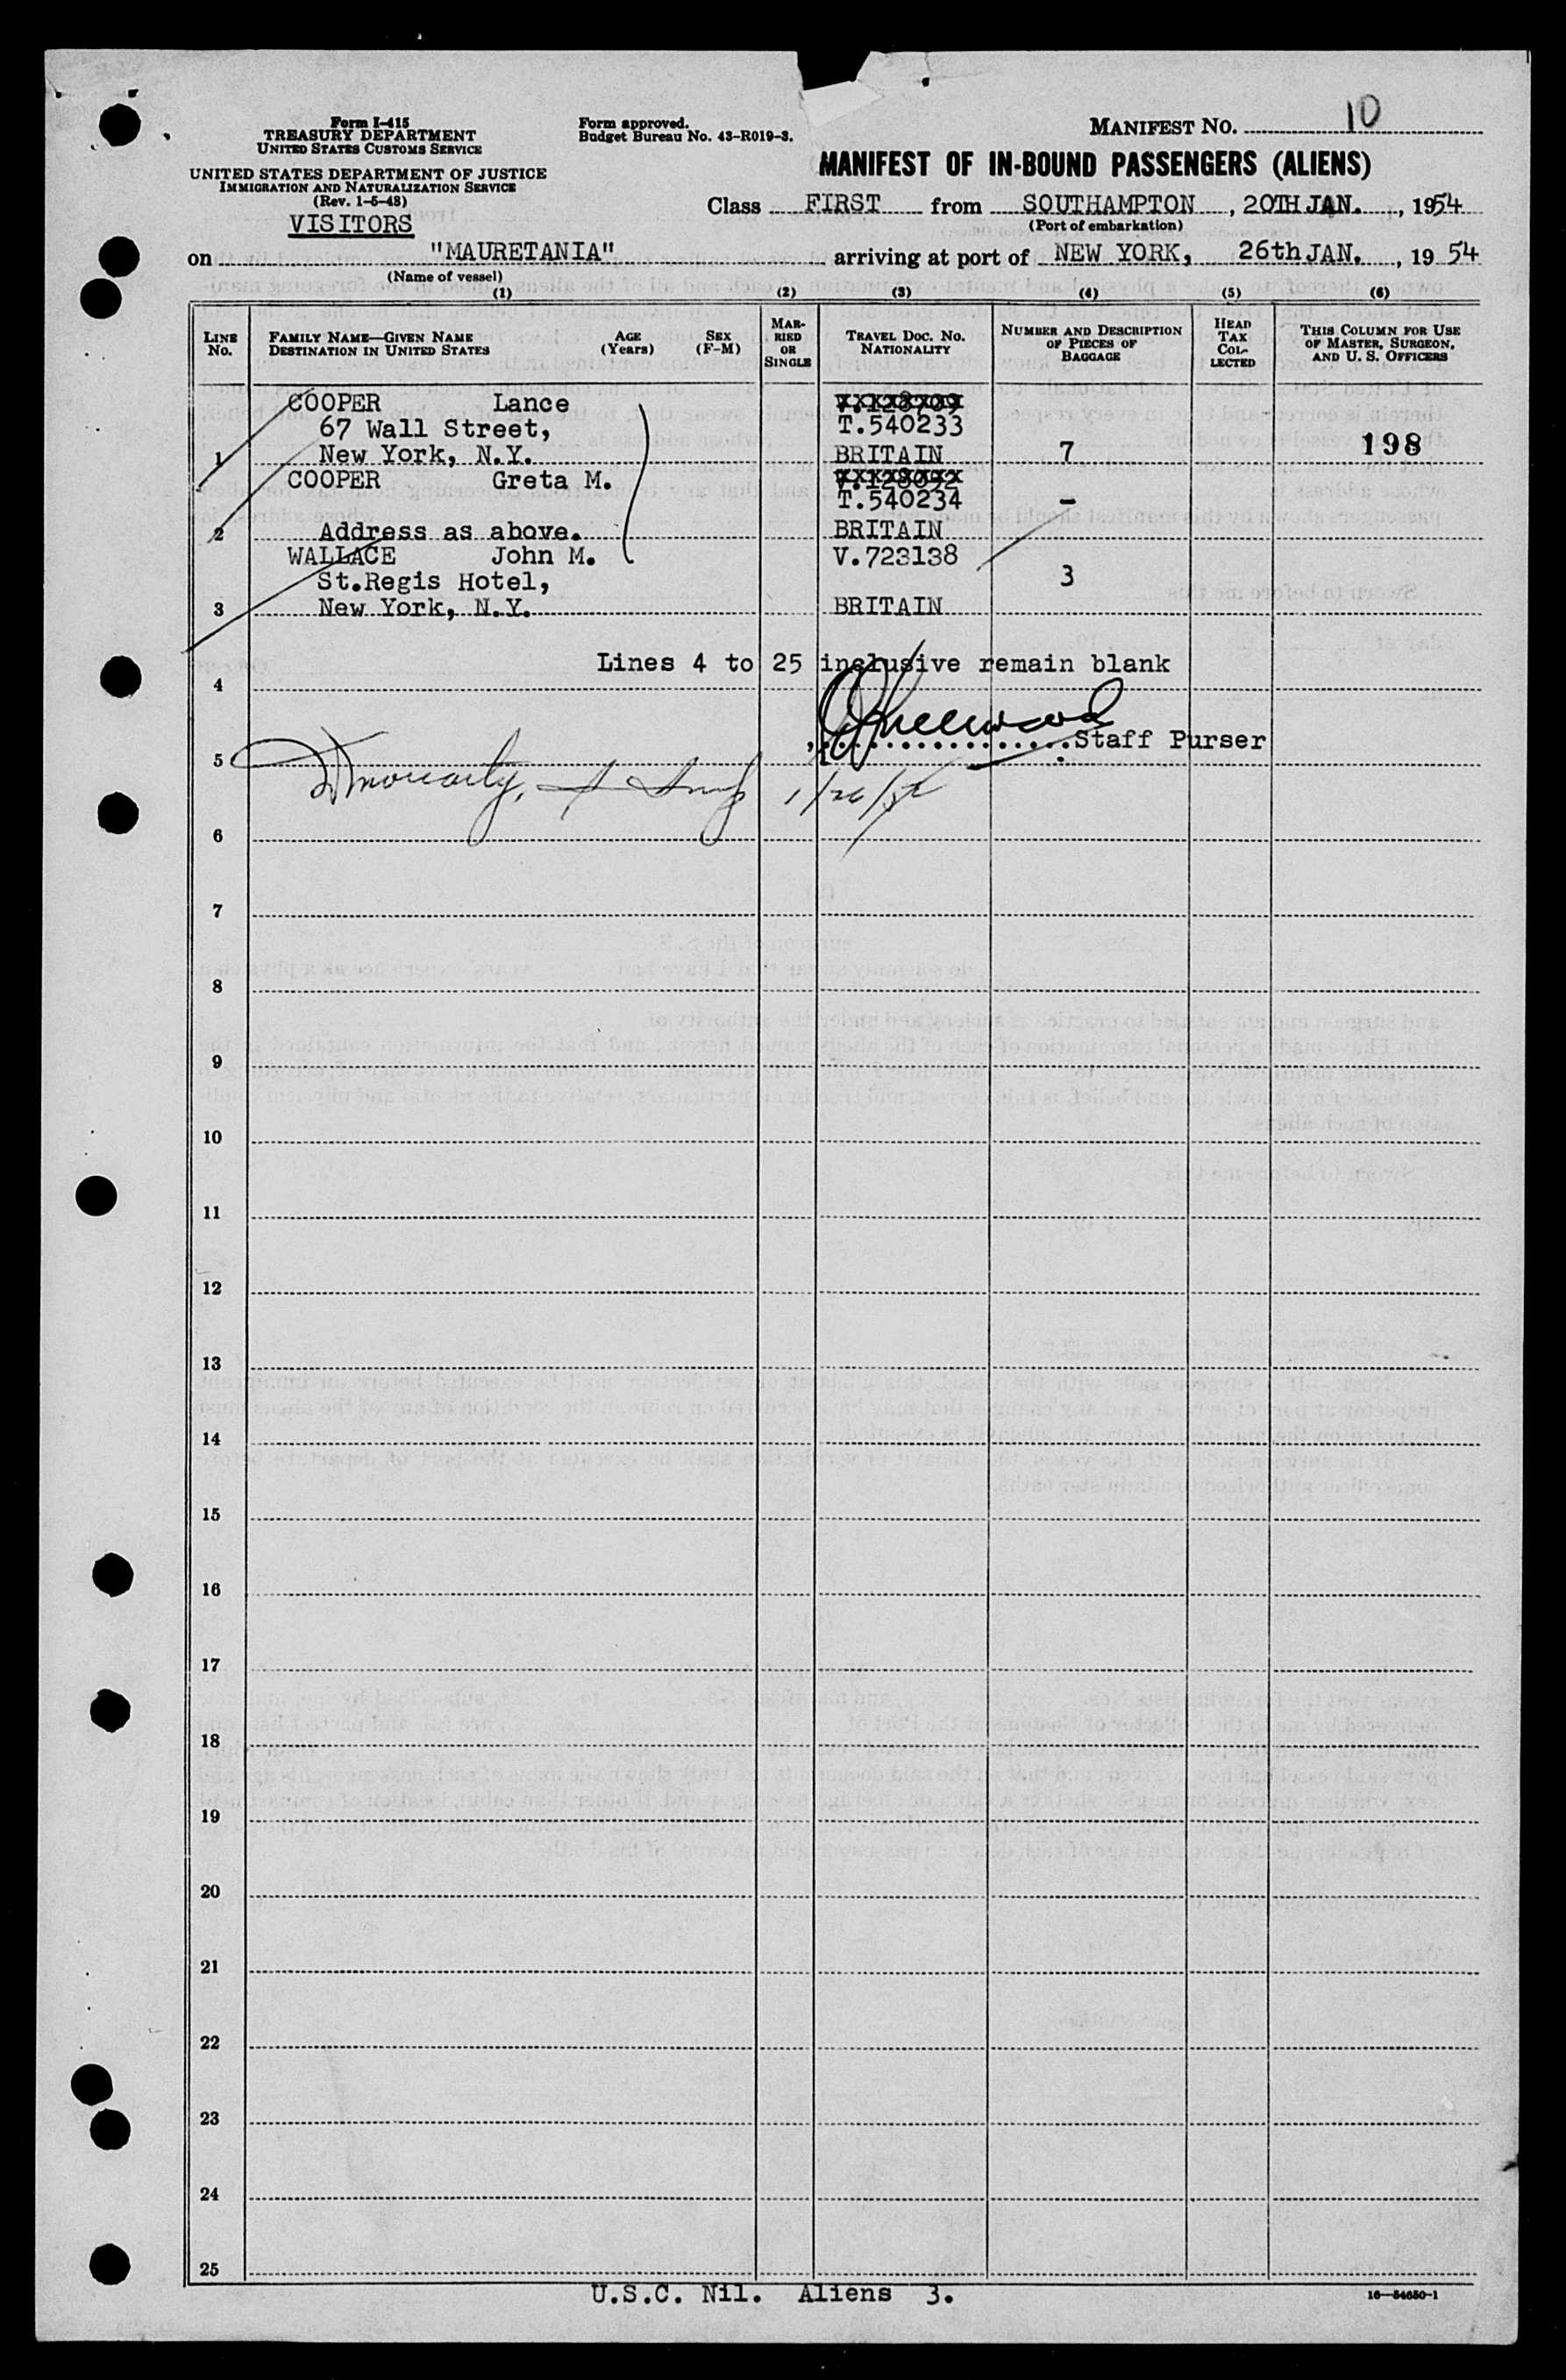 Form I-415
TREASURY DEPARTMENT
UNITED STATES CUSTOMS SERVICE
UNITED STATES DEPARTMENT OF JUSTICE
IMMIGRATION AND NATURALIZATION SERVICE
(Rev. 1-5-48)
VISITORS
Form approved.
Budget Bureau No. 43-R019-3.
MANIFEST NO. 10
MANIFEST OF IN-BOUND PASSENGERS (ALIENS)
Class FIRST from SOUTHAMPTON, 20TH JAN., 1954
(Port of embarkation)
on "MAURETANIA" arriving at port of NEW YORK, 26th JAN., 19 54
(Name of vessel)
(1) (2) (3) (4) (5) (6)
LINE No. FAMILY NAME—GIVEN NAME DESTINATION IN UNITED STATES AGE (Years) SEX (F-M) MARRIED OR SINGLE TRAVEL DOC. NO. NATIONALITY NUMBER AND DESCRIPTION OF PIECES OF BAGGAGE HEAD TAX COLLECTED THIS COLUMN FOR USE OF MASTER, SURGEON, AND U. S. OFFICERS
COOPER Lance
67 Wall Street, T.540233
1 New York, N.Y. BRITAIN 7 198
COOPER Greta M.
T.540234 -
2 Address as above. BRITAIN
WALLACE John M. V.723138
St.Regis Hotel, 3
3 New York, N.Y. BRITAIN
Lines 4 to 25 inclusive remain blank
4
Staff Purser
5
1/26/54
6
7
8
9
10
11
12
13
14
15
16
17
18
19
20
21
22
23
24
25
U.S.C. Nil. Aliens 3.
16—54650-1